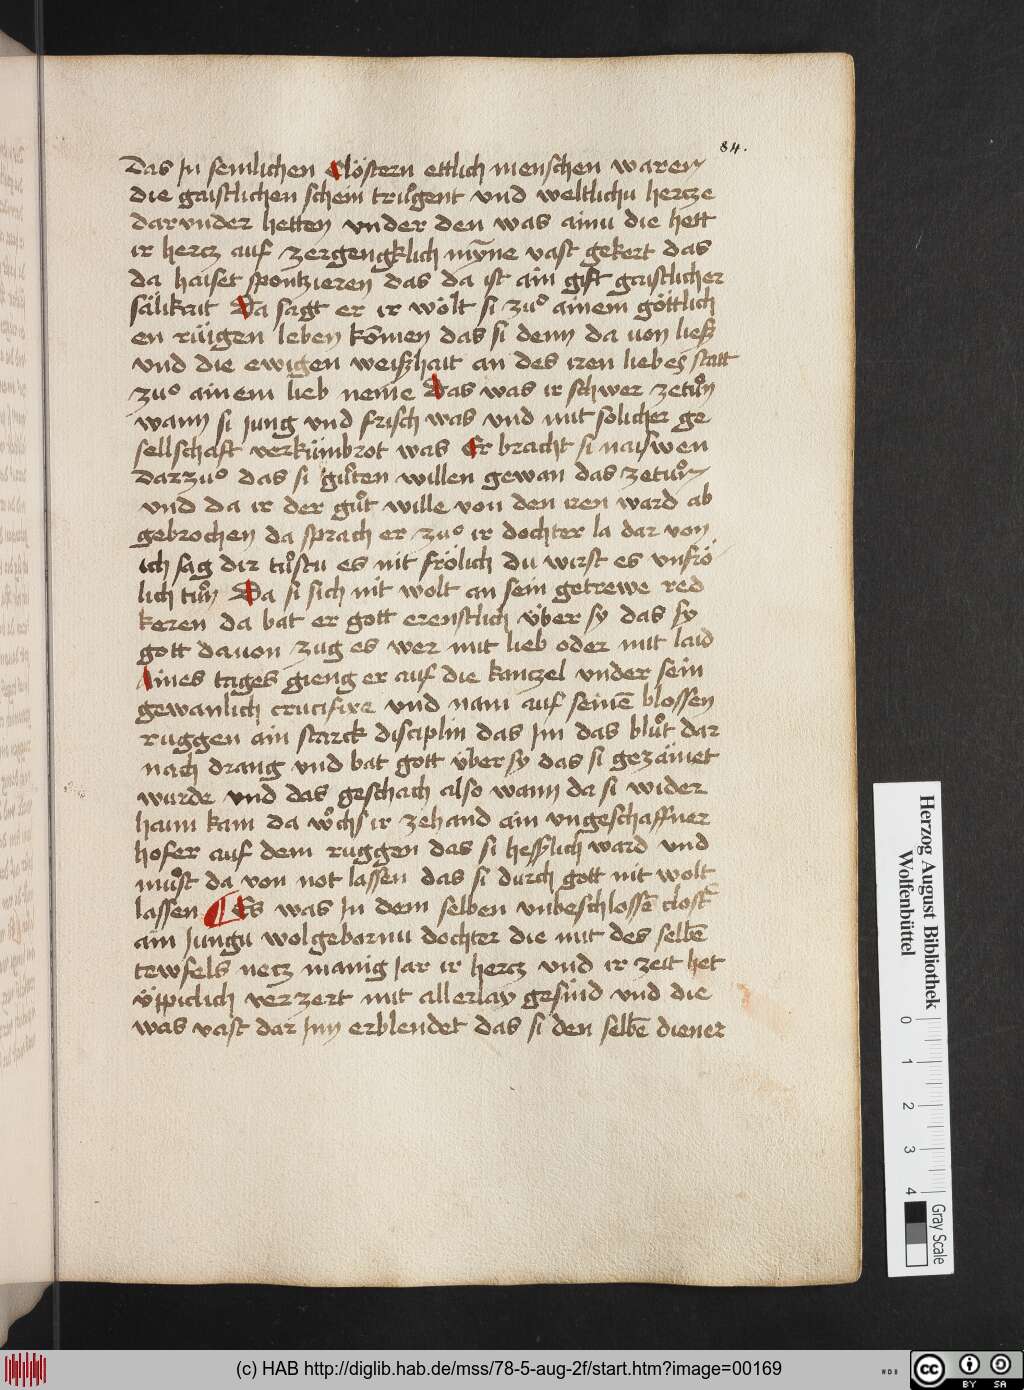 84.
das Jn semlichen Clöstern ettlich menschen waren
die gaistlichen schein trügent vnd weltlichu hertze
darunder hetten vnder den was ainu die hett
ir hertz auf zergengklich myñe vast gekert das
da haiset spontzieren das da ist ain gift gaistlicher
sälikait Da sagt er ir wölt si zuͦ ainem göttlich
en rüigen leben kom̄en das si denn da von ließ
vnd die ewigen weißhait an des iren liebes statt
zuͦ ainem lieb neme Das was ir schwer zetuͦn
wann si jung vnd frisch was vnd mit solicher ge
sellschaft verkümbrot was Er bracht si naiswen
darzuͦ das si guͦten willen gewan das zetuͦn
vnd da ir der guͦt wille von den iren ward ab
gebrochen da sprach er zuͦ ir dochter la dar von
ich sag dir tuͦstu es nit frölich du wirst es vnfrö
lich tuͦn Da si sich nit wolt an sein getrewe red
keren da bat er gott erenstlich über sy das sy
gott dauon zug es wer mit lieb oder mit laid
Aines tages gieng er auf die kantzel vnder sein
gewanlich crucifixe vnd nam auf seinē blossen
ruggen ain starck disciplin das Jm das bluͦt dar
nach drang vnd bat gott über sy das si gezämet
wurde vnd das geschach also wann da si wider
haim kam da wuͦchs ir zehand ain vngeschaffner
hofer auf dem ruggen das si hesslich ward vnd
muͦst da von not lassen das si durch gott nit wolt
lassen Es was Jn dem selben vnbeschlossē clost̄
ain Jungu wolgebornu dochter die mit des selbē
tewfels netz manig Jar ir hertz vnd ir zeit het
üppiclich verzert mit allerlay gesind vnd die
was vast dar Jnn erblendet das si den selbē diener
Herzog August Bibliothek
Wolfenbüttel
0 1 2 3 4
Gray Scale
(c) HAB http://diglib.hab.de/mss/78-5-aug-2f/start.htm?image=00169
cc BY SA